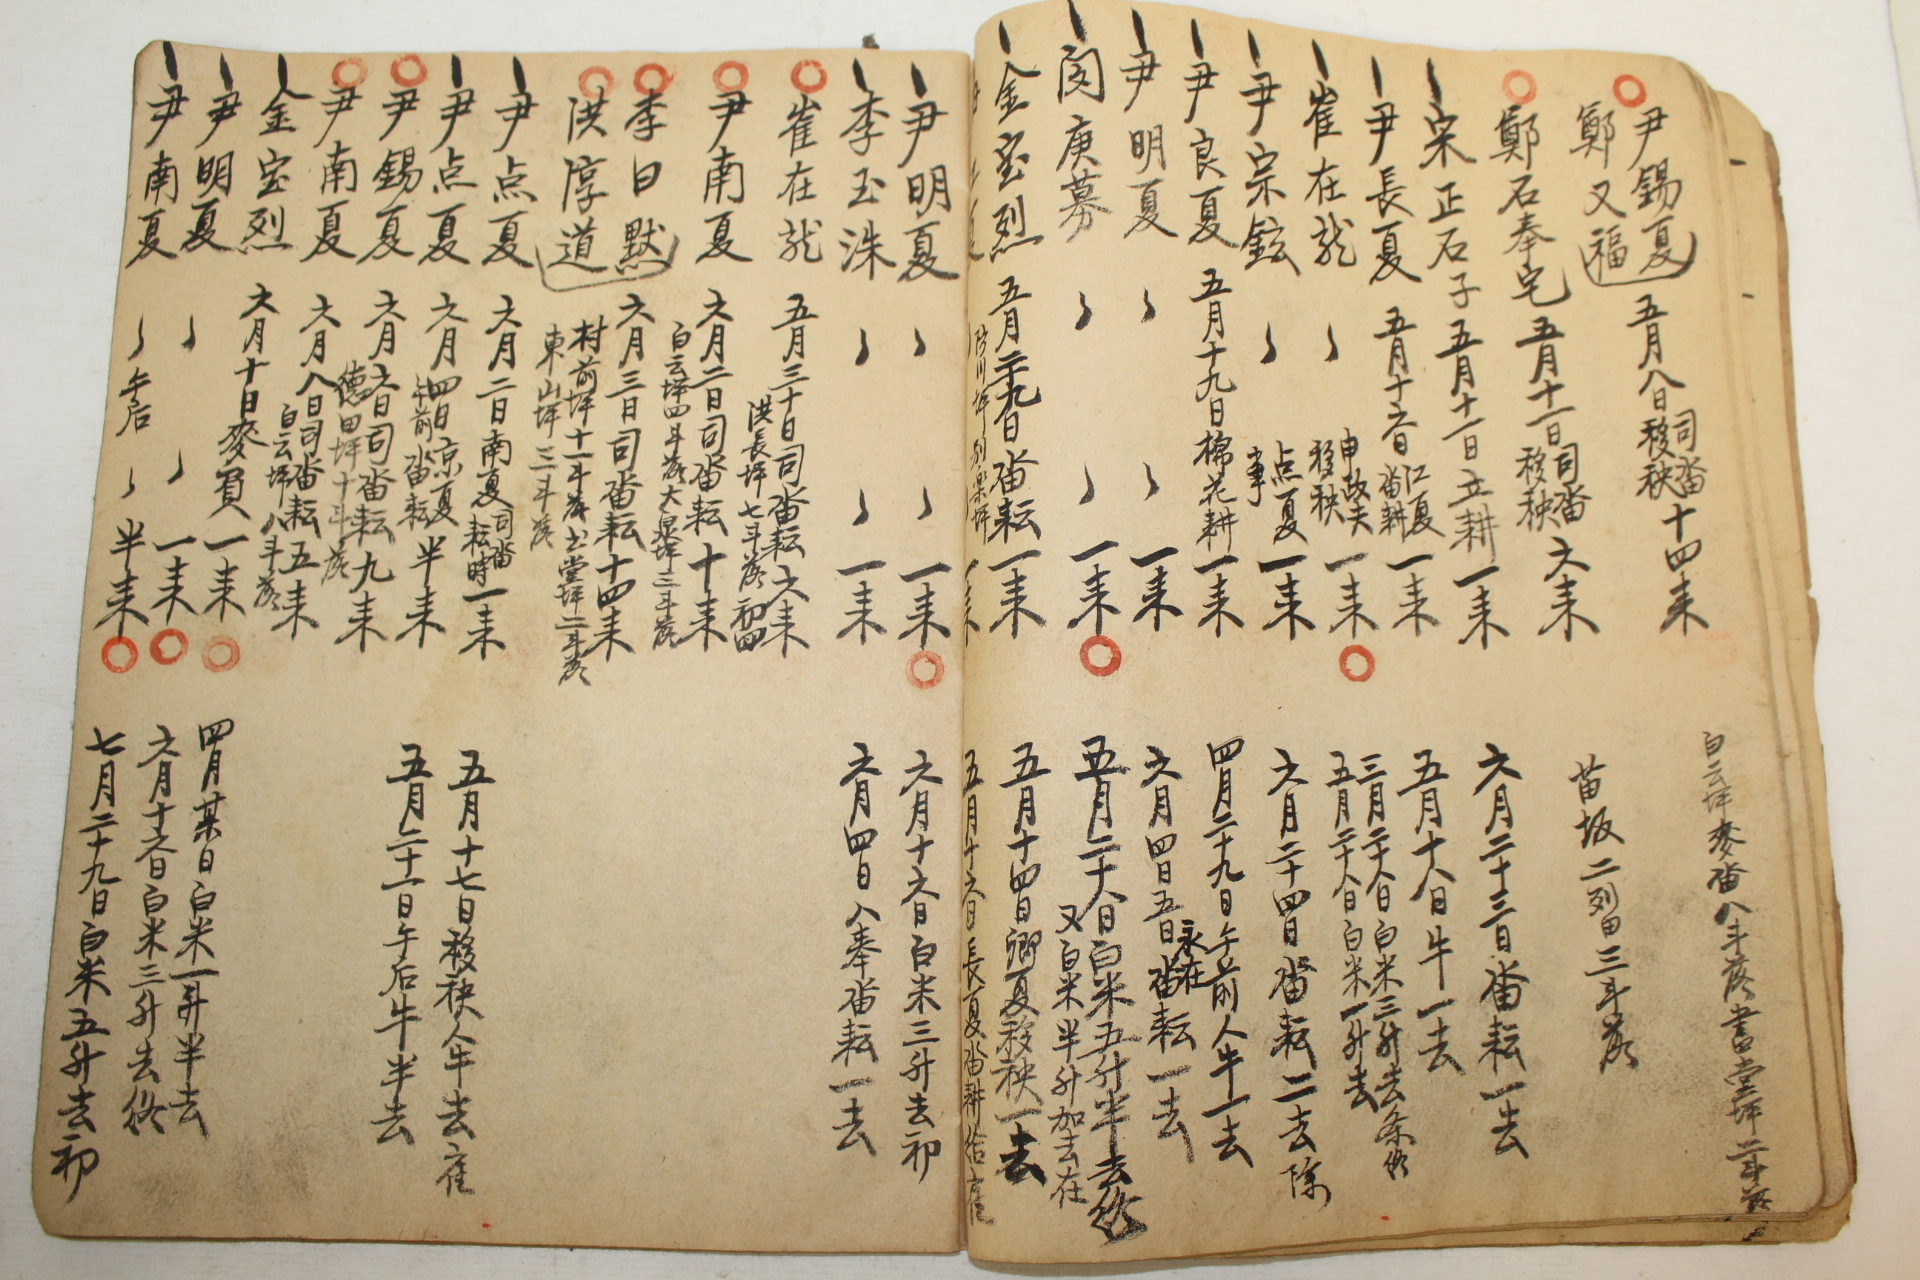 尹錫夏 五月八日司畓移秧十四来
鄭又福
白云坪麥畓八斗落書堂坪二斗落
鄭石奉宅 五月十一日司畓移秧六来
苗坂二列田三斗落
宋正石子 五月十一日立耕一来
六月二十三日畓耘一去
尹長夏 五月十六日江夏畓耕一来
五月十八日牛一去
崔在龍 申故夫移秧一来
三月二十八日白米三升去条
五月二十八日白米一升去
尹宗鉉 点夏事一来
六月二十四日畓耘二去除
尹良夏 五月十九日棉花耕一来
四月二十九日午前人牛一去
尹明夏 一来
六月四日五日永在畓耘一去
閔庚募 一来
五月二十八日白米五升半去終
又白米半升加去在
金宝烈 五月二十九日畓耘一来
五月十四日卿夏移秧一去
五月十六日長夏畓耕
尹明夏 一来
六月十六日白米三升去初
李玉洙 一来
六月四日八奉畓耘一去
崔在龍 五月三十日司畓耘六来
洪長坪七斗落初四
尹南夏 六月二日司畓耘十来
白云坪四斗落大坪三斗落
李日默 六月三日司畓耘十四来
洪淳道 村前坪十一斗落書堂坪二斗落
東山坪三斗落
尹点夏 六月二日南夏司畓耘時一来
五月十七日移秧人牛去在
尹点夏 六月四日京夏午前畓耘半来
五月二十一日午后牛半去
尹錫夏 六月六日司畓耘九来
德田坪十斗落
尹南夏 六月八日司畓耘五来
白云坪八斗落
金宝烈 六月十日麥買一来
四月某日白米一升半去
尹明夏 一来
六月十六日白米三升去終
尹南夏 午后 半来
七月二十九日白米五升去初